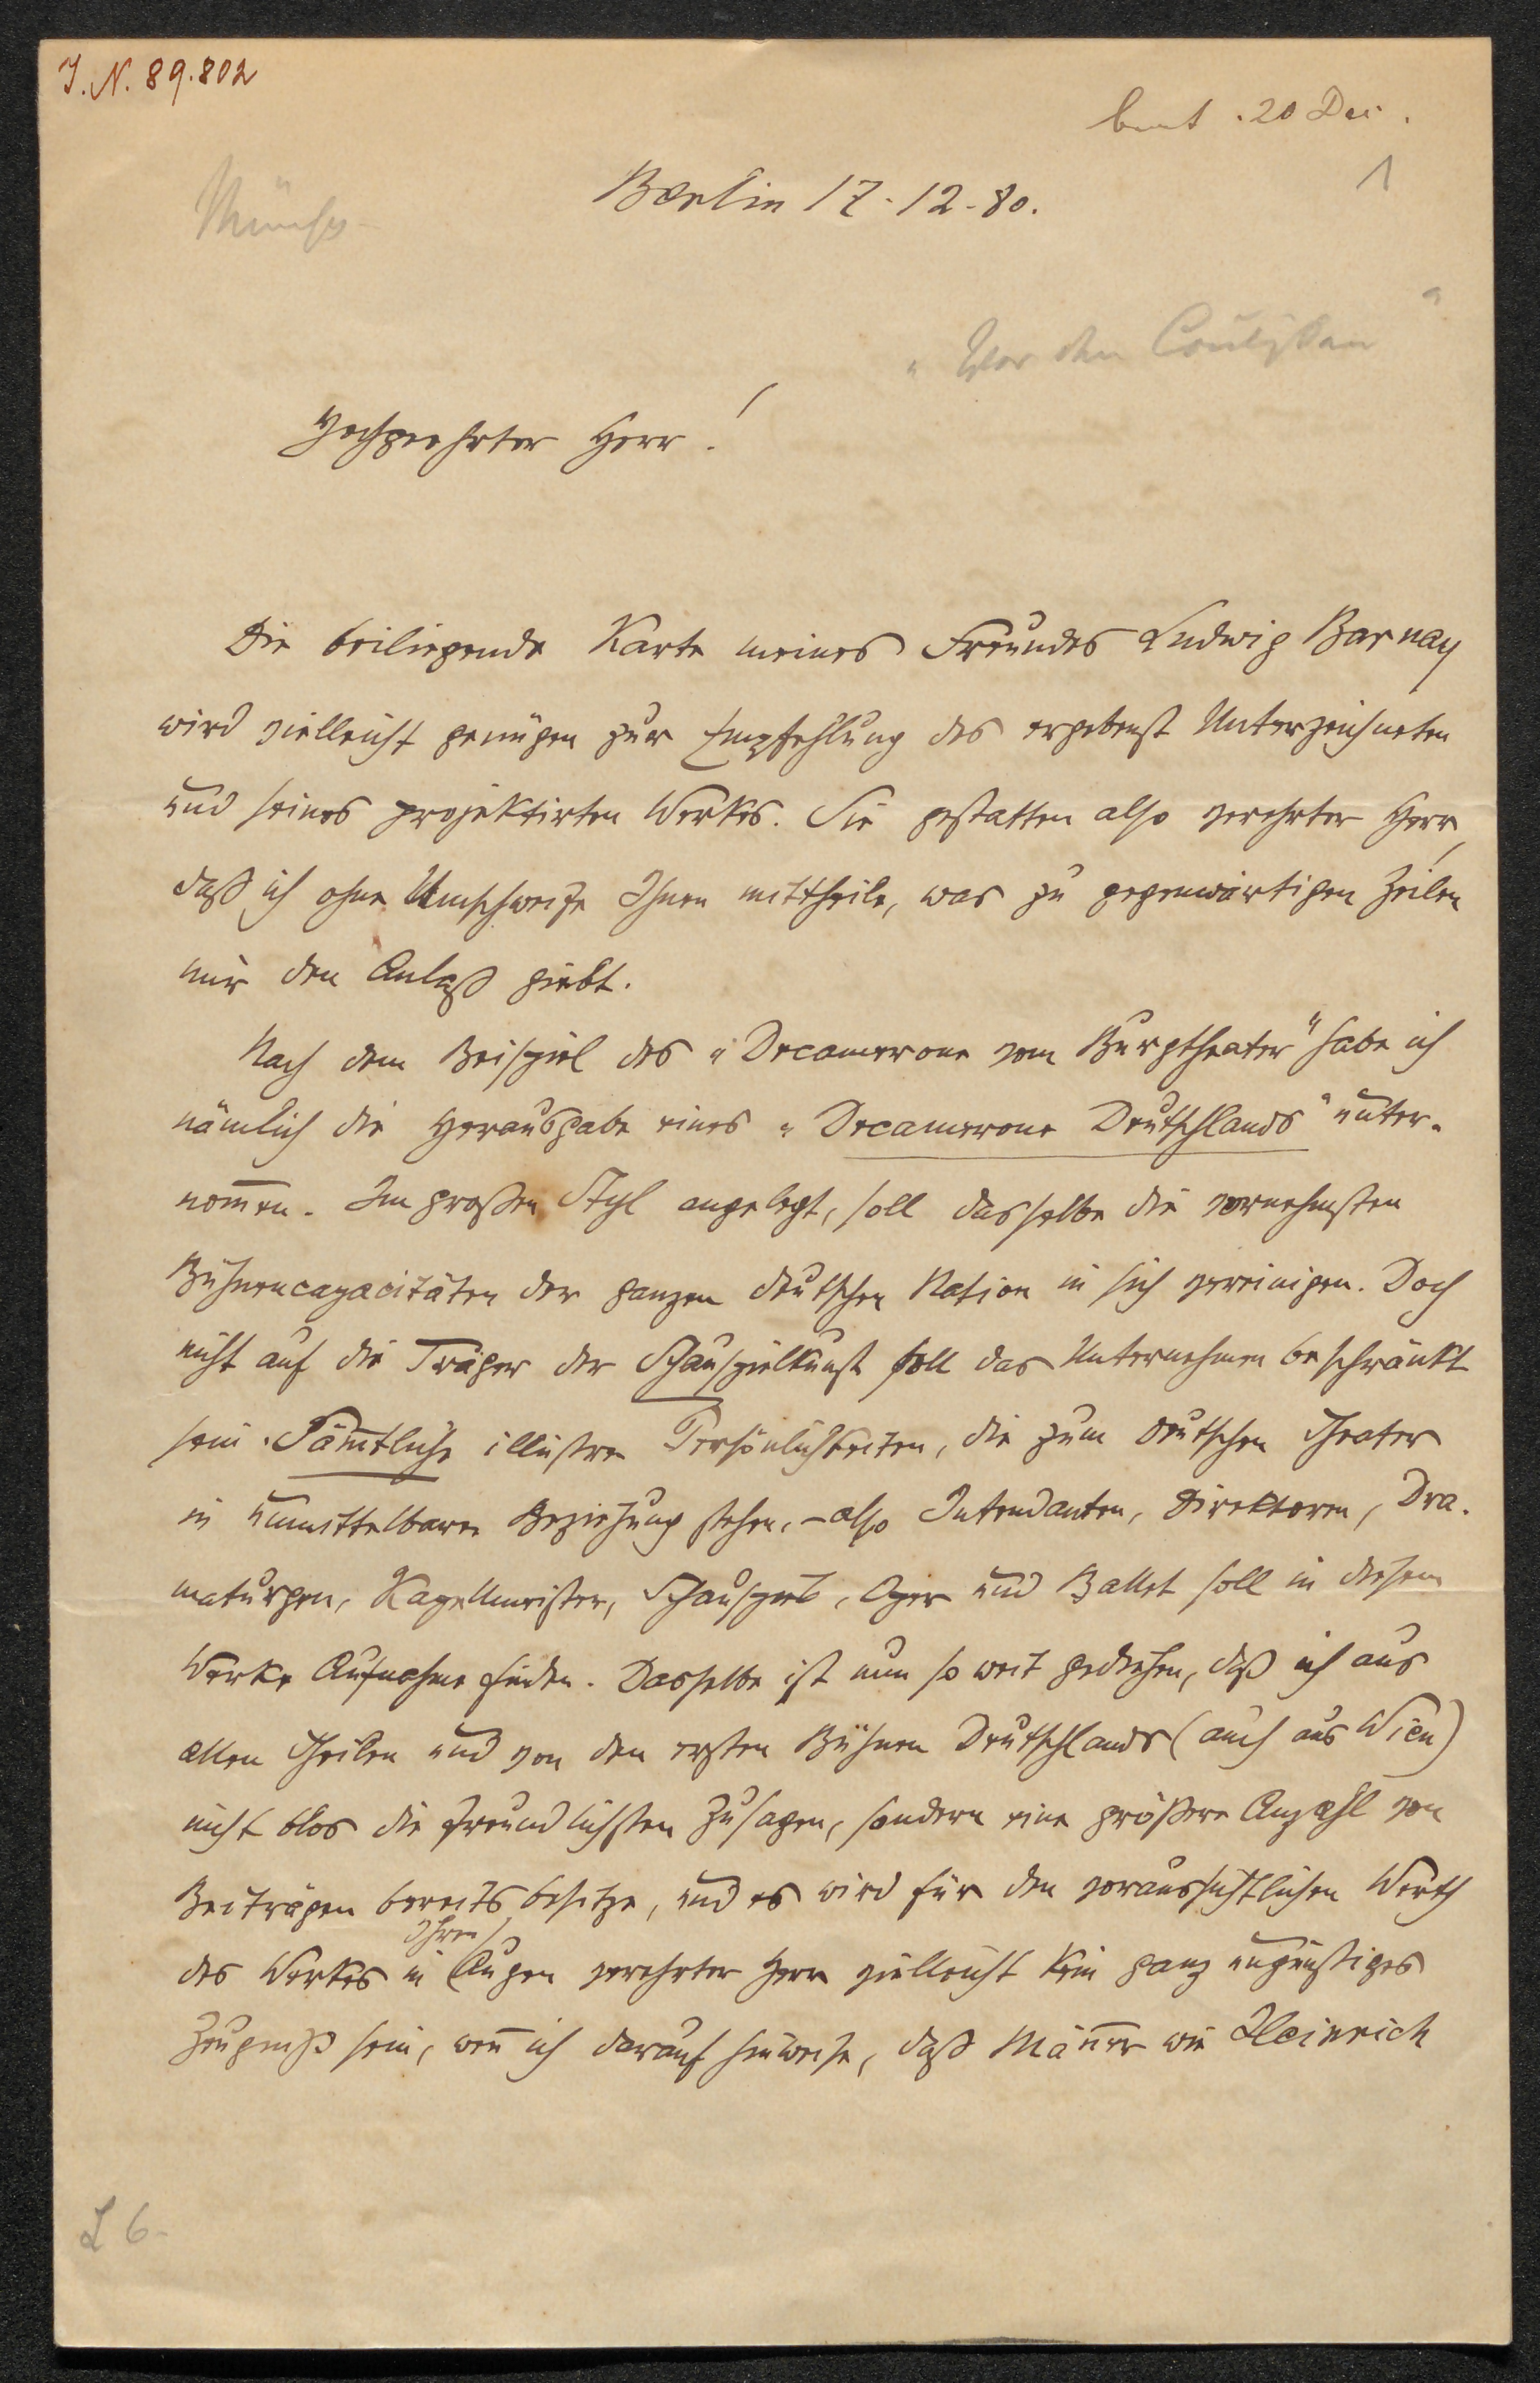 J. N. 89.802
20 Dec.
1
Berlin 17-12-80.
„Vor den Coulissen“
Hochgeehrter Herr!
Die beiliegende Karte meines Freundes Ludwig Barnay
wird vielleicht genügen zur Empfehlung des ergebenst Unterzeichneten
und seines projektirten Werkes. Sie gestatten also verehrter Herr,
daß ich ohne Umschweife Ihnen mittheile, was zu gegenwärtigen Zeilen
mir den Anlaß giebt.
Nach dem Beispiel des „Decamerone vom Burgtheater“ habe ich
nämlich die Herausgabe eines „Decamerone Deutschlands“ unter-
nom̄en. Im großen Styl angelegt, soll dasselbe die vornehmsten
Bühnencapacitäten der ganzen deutschen Nation in sich vereinigen. Doch
nicht auf die Träger der Schauspielkunst soll das Unternehmen beschränkt
sein. Säm̄tliche illustre Persönlichkeiten, die zum deutschen Theater
in unmittelbarer Beziehung stehen, – also Intendanten, Direktoren, Dra-
maturgen, Kapellmeister, Schauspiel, Oper und Ballet soll in diesem
Werke Aufnahme finden. Dasselbe ist nun so weit gediehen, daß ich aus
allen Theilen und von den ersten Bühnen Deutschlands (auch aus Wien)
nicht blos die freundlichsten Zusagen, sondern eine größere Anzahl von
Beiträgen bereits besitze, und es wird für den voraussichtlichen Werth
Ihren
des Werkes in Augen verehrter Herr vielleicht kein ganz ungünstiges
Zeugniß sein, wen̄ ich darauf hinweise, daß Män̄er wie Heinrich
L 6-